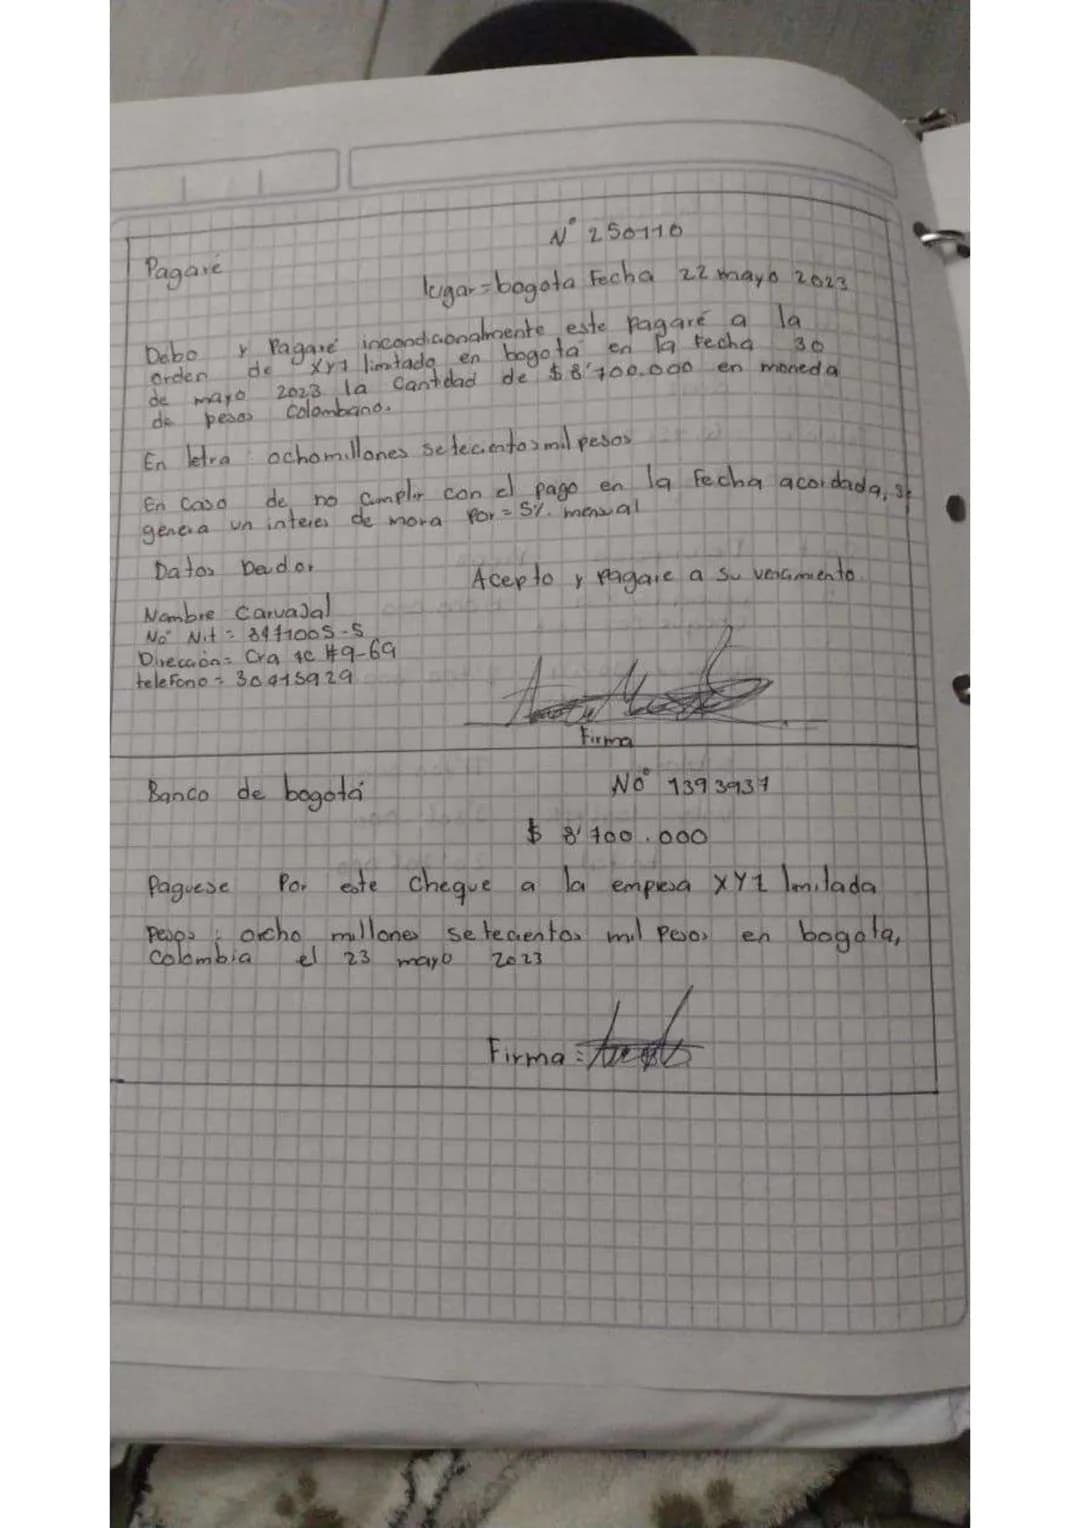 N° 250110
Pagaré
lugar = bogota Fecha 22 mayo 2023
Debo y Pagaré incondicionalmente este pagaré a la
orden de XY1 limitado en bogotá en la fecha 30
de mayo 2023 la Cantidad de $8'700.000 en moneda
de pesos Colombano.
En letra : ochomillones setecientos mil pesos
En Caso de no Cumplir con el pago en la Fecha acordada, se
genera un interes de mora Por = 5% mensual
Datos Deudor
Acepto y Pagare a su vencimiento.
Nombre Carvajal
No° Nit = 8911005-5
Dirección = Cra 1C #9-69
teleFono = 30915929
Firma
Banco de bogotá No° 1393937
$ 8'700.000
Paguese Por este Cheque a la empresa XY1 lmitada
Pesos : orcho millones setecientos mil Pesos en bogota,
Colombia el 23 mayo 2023
Firma :